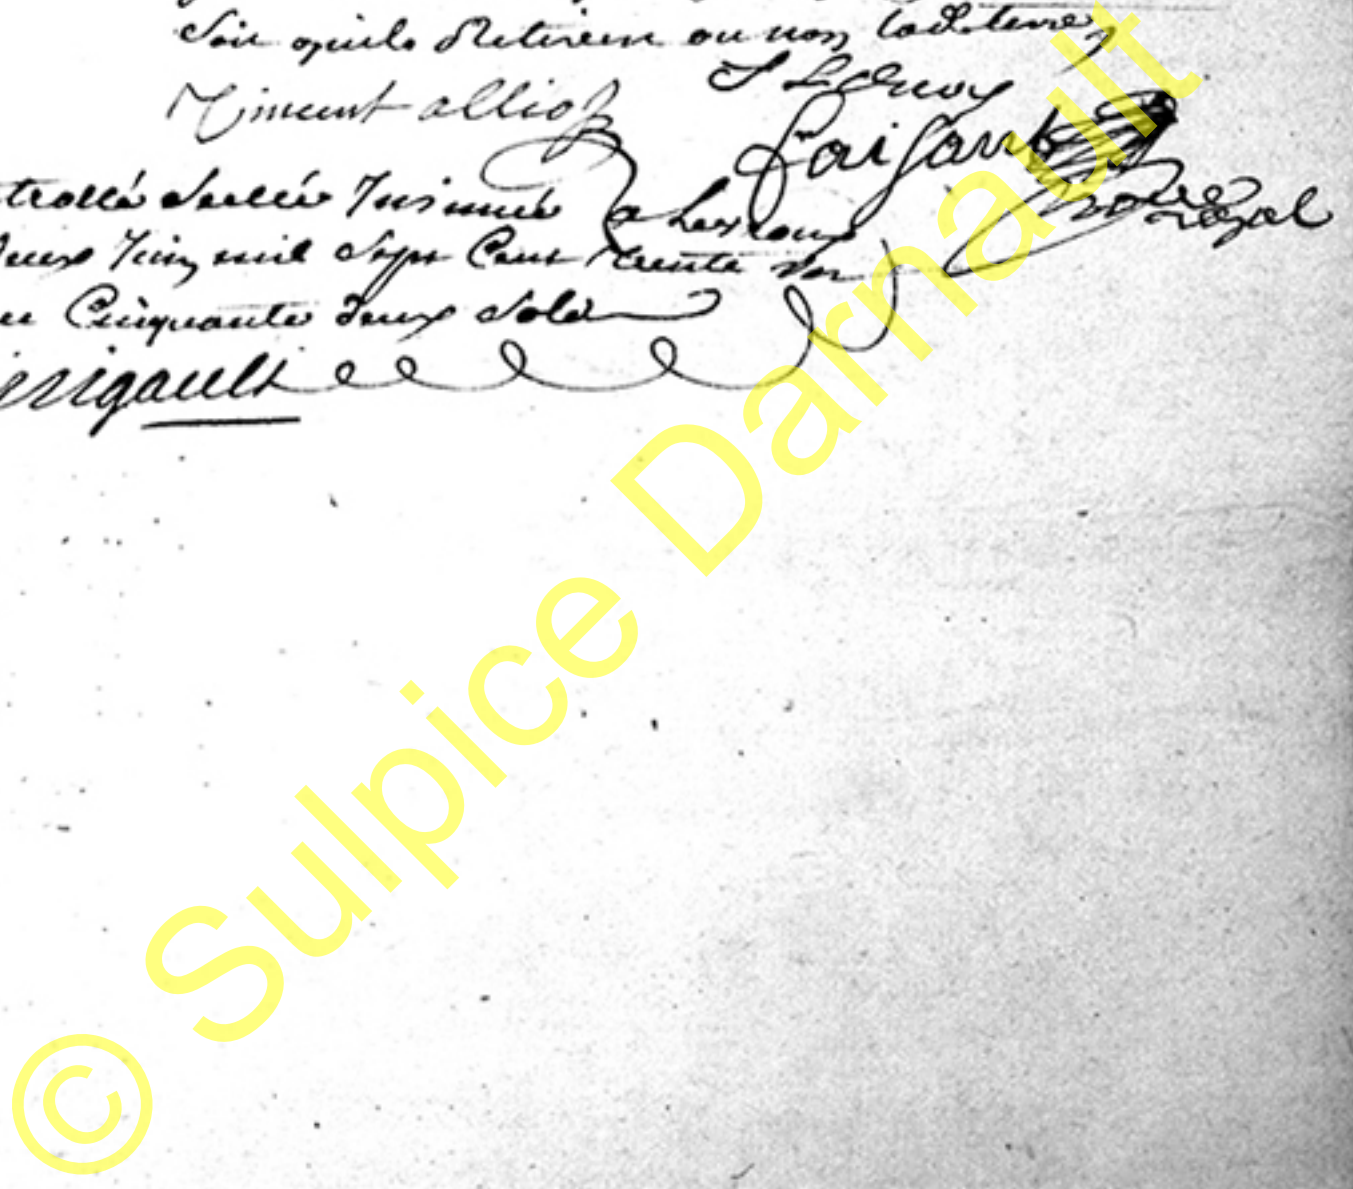 Soit quils Retirent ou non lad. terre
Vincent alliot
J Leduoy
faisant
no.re royal
trollé Scellée Insinué a Levroux
deux Juin mil Sept Cent trente
Cinquante deux Sols
rigault
© Sulpice Darnault